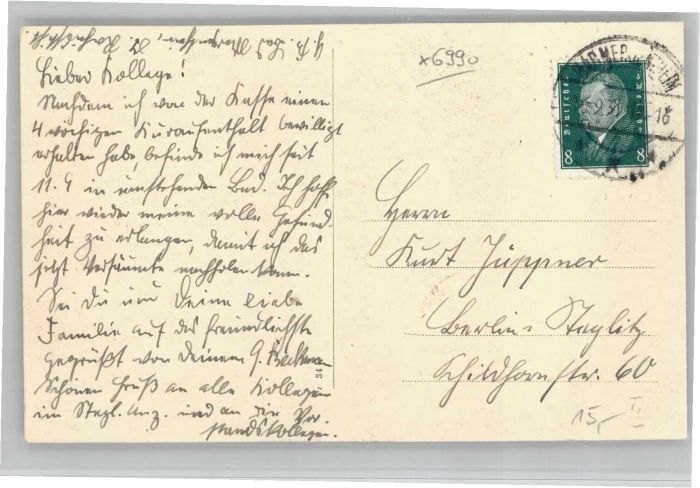 x6990
Lieber Kollege!
Nachdem ich von der Kasse einen
4 wöchigen Kuraufenthalt bewilligt
erhalten habe befinde ich mich seit
11.9 in umstehenden Bad. Ich hoffe
hier wieder meine volle Gesund-
heit zu erlangen, damit ich das
jetzt Versäumte nachholen kann.
Sei Du und Deine liebe
Familie auf das freundlichste
gegrüßt von Deinem G. Beckmann
Schönen Gruß an alle Kollegen
im Stegl. Anz. und an die Vor-
standskollegen.
34
Deutsches Reich
8 8
Herrn
Kurt Jüppner
Berlin-Steglitz
Schildhornstr. 60
15,- II